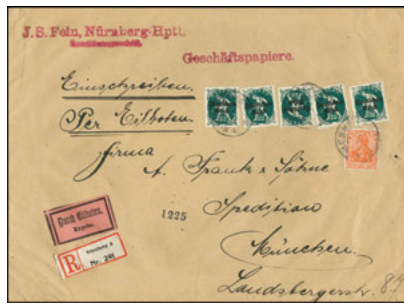 J. S. Fein, Nürnberg-Hptb.
Geschäftspapiere.
Einschreiben.
Per Eilboten.
Firma
A. Frank & Söhne
Spedition
München.
Landsbergerstr. 87
Durch Eilboten.
Exprès.
1225
R
Nürnberg 2
Nr. 291